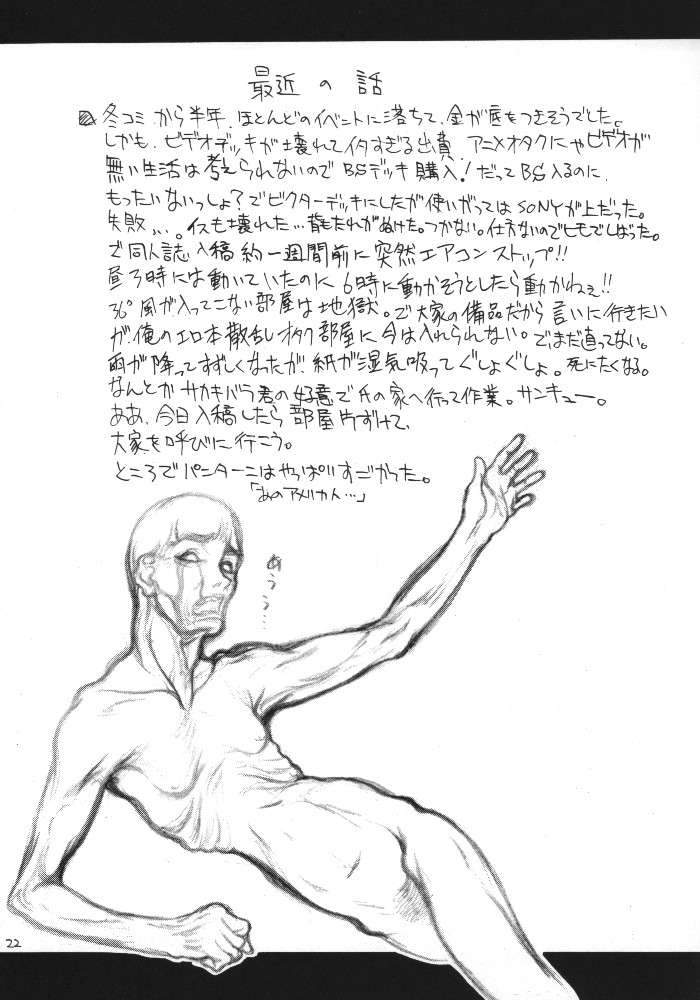 最近の話
冬コミから半年、ほとんどのイベントに落ちて、金が底をつきそうでした。
しかも、ビデオデッキが壊れてイタすぎる出費 アニメオタクにゃビデオが
無い生活は考えられないのでBSデッキ購入!だってBS入るのに、
もったいないっしょ?でビクターデッキにしたが使いがってはSONYが上だった。
失敗、、、。イスも壊れた…背もたれがぬけた。つかない。仕方ないのでヒモでしばった。
で同人誌入稿約一週間前に突然エアコンストップ!!
昼3時には動いていたのに6時に動かそうとしたら動かねぇ!!
36°風が入ってこない部屋は地獄。で大家の備品だから言いに行きたい
が、俺のエロ本散乱オタク部屋に今は入れられない。でまだ直ってない。
雨が降ってすずしくなったが、紙が湿気吸ってぐしょぐしょ。死にたくなる。
なんとかサカキバラ君の好意で氏の家へ行って作業。サンキュー。
ああ、今日入稿したら部屋片ずけて、
大家を呼びに行こう。
ところでパニターニはやっぱすごかった。
「あのアメリカ人…」
あうう…
22